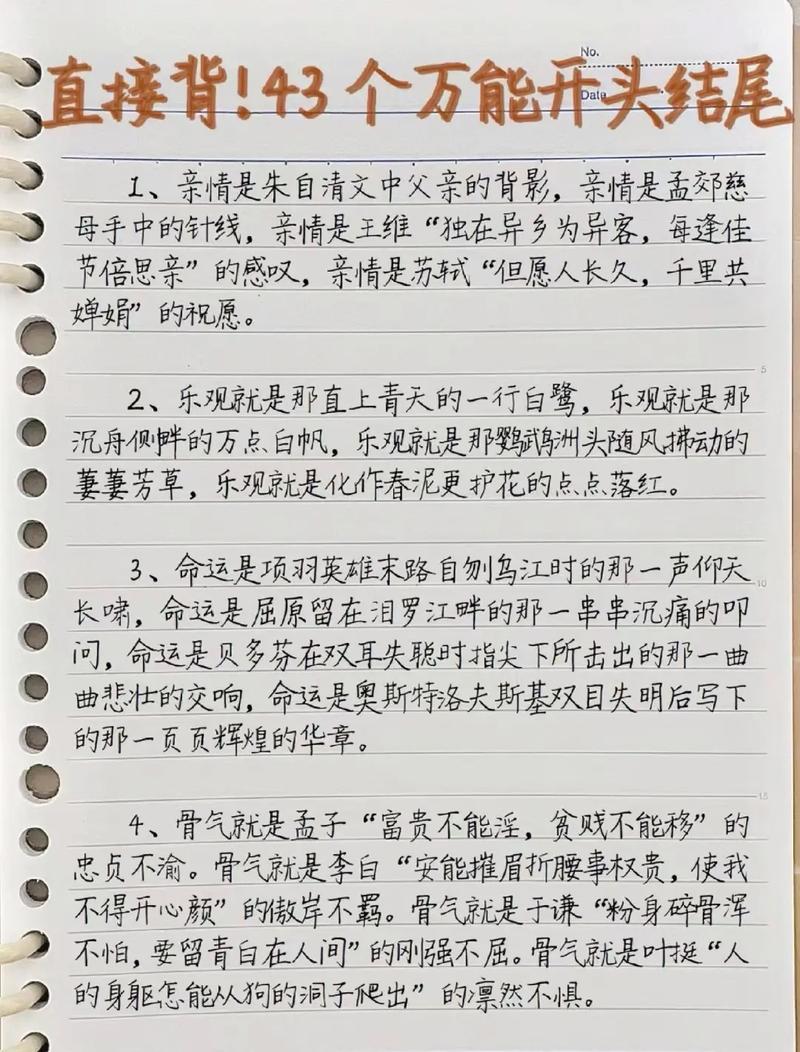 No.
Date
直接背！43个万能开头结尾
1、亲情是朱自清文中父亲的背影，亲情是孟郊慈
母手中的针线，亲情是王维“独在异乡为异客，每逢佳
节倍思亲”的感叹，亲情是苏轼“但愿人长久，千里共
婵娟”的祝愿。
5
2、乐观就是那直上青天的一行白鹭，乐观就是那
沉舟侧畔的万点白帆，乐观就是那鹦鹉洲头随风拂动的
萋萋芳草，乐观就是化作春泥更护花的点点落红。
3、命运是项羽英雄末路自刎乌江时的那一声仰天
10
长啸，命运是屈原留在汨罗江畔的那一串串沉痛的叩
问，命运是贝多芬在双耳失聪时指尖下所击出的那一曲
曲悲壮的交响，命运是奥斯特洛夫斯基双目失明后写下
的那一页页辉煌的华章。
15
4、骨气就是孟子“富贵不能淫，贫贱不能移”的
忠贞不渝。骨气就是李白“安能摧眉折腰事权贵，使我
不得开心颜”的傲岸不羁。骨气就是于谦“粉身碎骨浑
不怕，要留青白在人间”的刚强不屈。骨气就是叶挺“人
的身躯怎能从狗的洞子爬出”的凛然不惧。